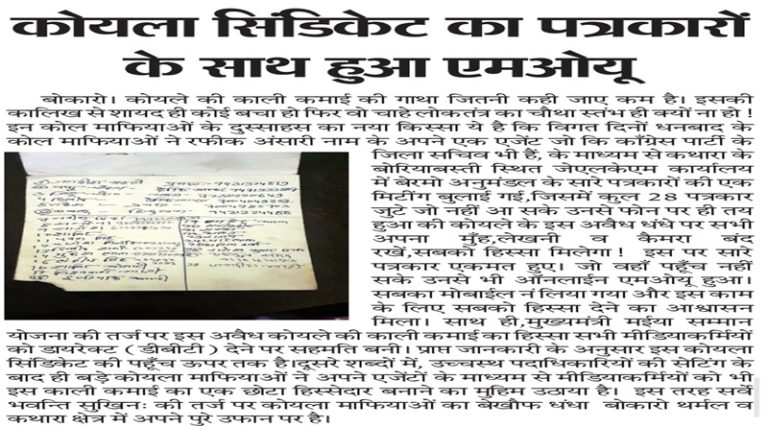 कोयला सिंडिकेट का पत्रकारों
के साथ हुआ एमओयू
बोकारो। कोयले की काली कमाई की गाथा जितनी कही जाए कम है। इसकी
कालिख से शायद ही कोई बचा हो फिर वो चाहे लोकतंत्र का चौथा स्तंभ ही क्यों ना हो !
इन कोल माफियाओं के दुस्साहस का नया किस्सा ये है कि विगत दिनों धनबाद के
कोल माफियाओं ने रफीक अंसारी नाम के अपने एक एजेंट जो कि काँग्रेस पार्टी के
जिला सचिव भी है, के माध्यम से कथारा के
बोरियाबस्ती स्थित जेएलकेएम कार्यालय
में बेरमो अनुमंडल के सारे पत्रकारों की एक
मिटींग बुलाई गई,जिसमें कुल 28 पत्रकार
जुटे जो नहीं आ सके उनसे फोन पर ही तय
हुआ की कोयले के इस अवैध धंधे पर सभी
अपना मुँह,लेखनी व कैमरा बंद
रखें,सबको हिस्सा मिलेगा ! इस पर सारे
पत्रकार एकमत हुए। जो वहाँ पहुँच नहीं
सके उनसे भी ऑनलाईन एमओयू हुआ।
सबका मोबाईल नं लिया गया और इस काम
के लिए सबको हिस्सा देने का आश्वासन
मिला। साथ ही,मुख्यमंत्री मईया सम्मान
योजना की तर्ज पर इस अवैध कोयले की काली कमाई का हिस्सा सभी मीडियाकर्मियों
को डायरेक्ट ( डीबीटी ) देने पर सहमति बनी। प्राप्त जानकारी के अनुसार इस कोयला
सिंडिकेट की पहुँच ऊपर तक है।दूसरे शब्दों में, उच्चस्थ पदाधिकारियों की सेटिंग के
बाद ही बड़े कोयला माफियाओं ने अपने एजेंटों के माध्यम से मीडियाकर्मियों को भी
इस काली कमाई का एक छोटा हिस्सेदार बनाने का मुहिम उठाया है। इस तरह सर्वे
भवन्ति सुखिनः की तर्ज पर कोयला माफियाओं का बेखौफ धंधा बोकारो थर्मल व
कथारा क्षेत्र में अपने पुरे उफान पर है।